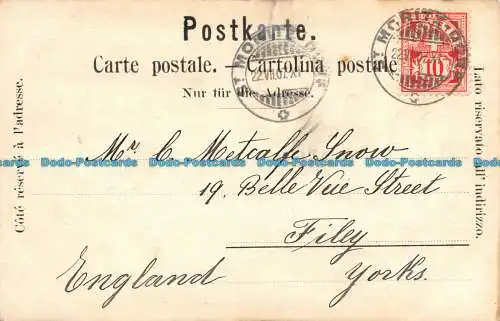 Postkarte.
Carte postale. - Cartolina postale
Nur für die Adresse.
Côté réservé à l'adresse.
Lato riservato all'indirizzo.
ST MORITZ
22.VII.02.XI
10
Mr. C Metcalfe Snow
19. Belle Vue Street
Filey
England Yorks.
Dodo-Postcards Dodo-Postcards Dodo-Postcards Dodo-Postcards Dodo-Postcards